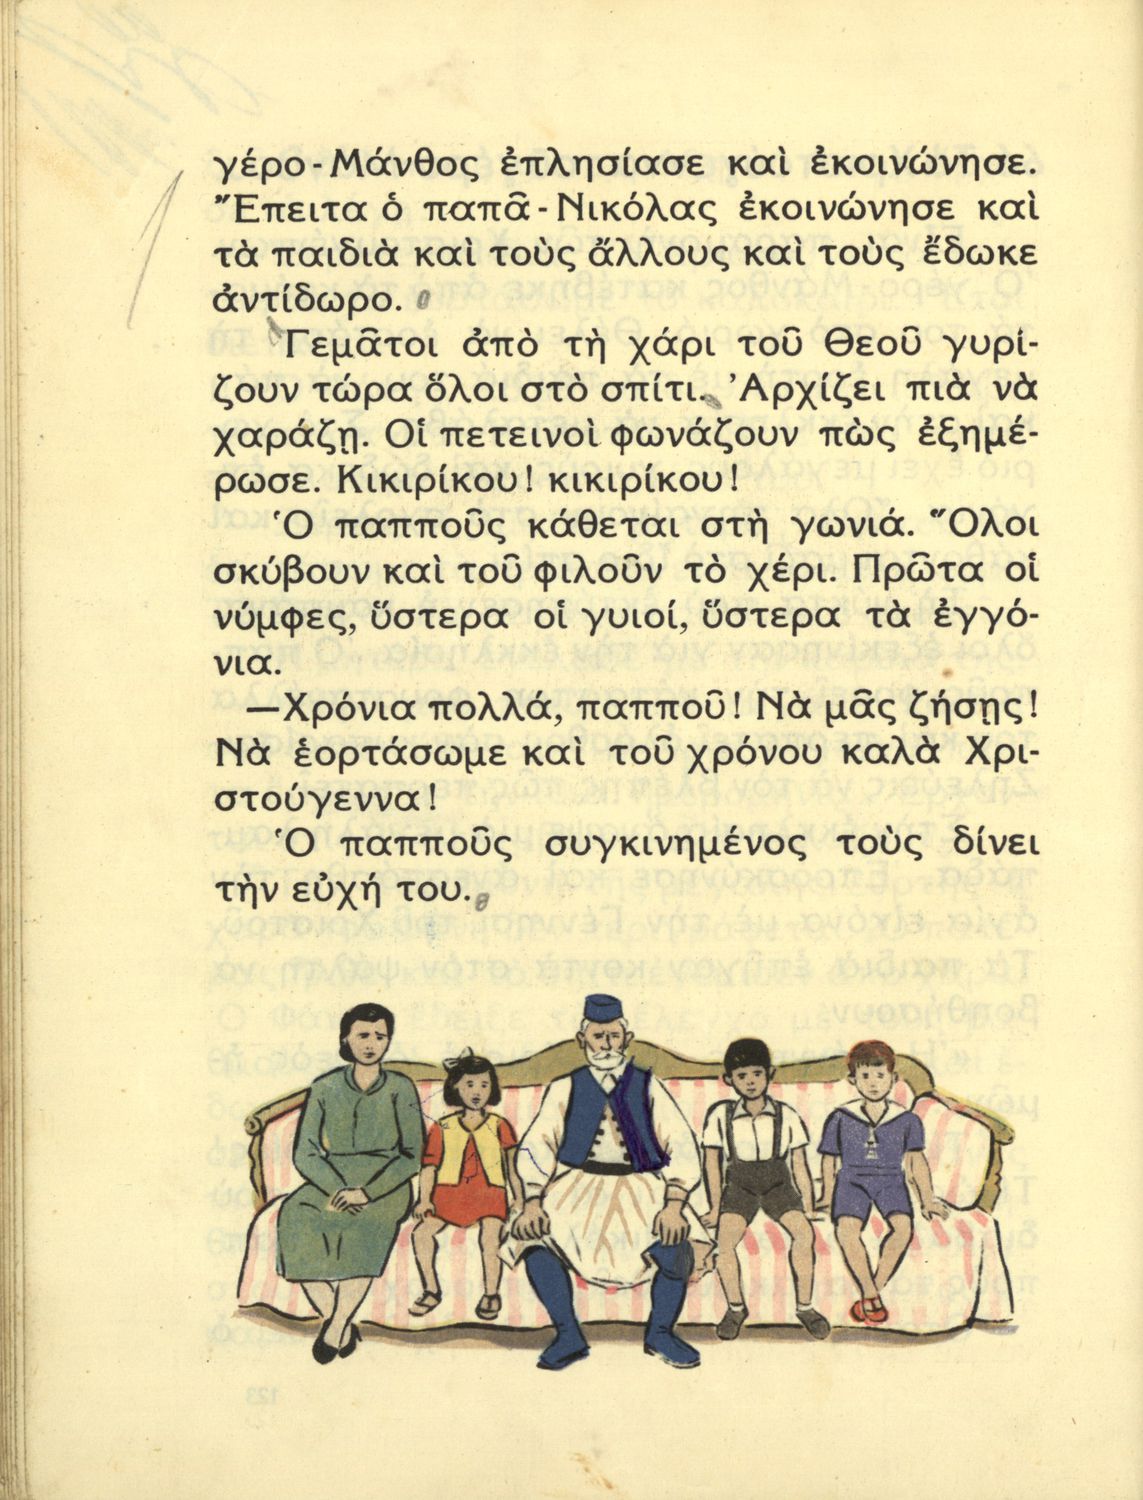 γέρο-Μάνθος ἐπλησίασε καὶ ἐκοινώνησε.
Ἔπειτα ὁ παπᾶ-Νικόλας ἐκοινώνησε καὶ
τὰ παιδιὰ καὶ τοὺς ἄλλους καὶ τοὺς ἔδωκε
ἀντίδωρο.
Γεμᾶτοι ἀπὸ τὴ χάρι τοῦ Θεοῦ γυρί-
ζουν τώρα ὅλοι στὸ σπίτι. Ἀρχίζει πιὰ νὰ
χαράζῃ. Οἱ πετεινοὶ φωνάζουν πὼς ἐξημέ-
ρωσε. Κικιρίκου! κικιρίκου!
Ὁ παπποῦς κάθεται στὴ γωνιά. Ὅλοι
σκύβουν καὶ τοῦ φιλοῦν τὸ χέρι. Πρῶτα οἱ
νύμφες, ὕστερα οἱ γυιοί, ὕστερα τὰ ἐγγό-
νια.
—Χρόνια πολλά, παπποῦ! Νὰ μᾶς ζήσῃς!
Νὰ ἑορτάσωμε καὶ τοῦ χρόνου καλὰ Χρι-
στούγεννα!
Ὁ παπποῦς συγκινημένος τοὺς δίνει
τὴν εὐχή του.